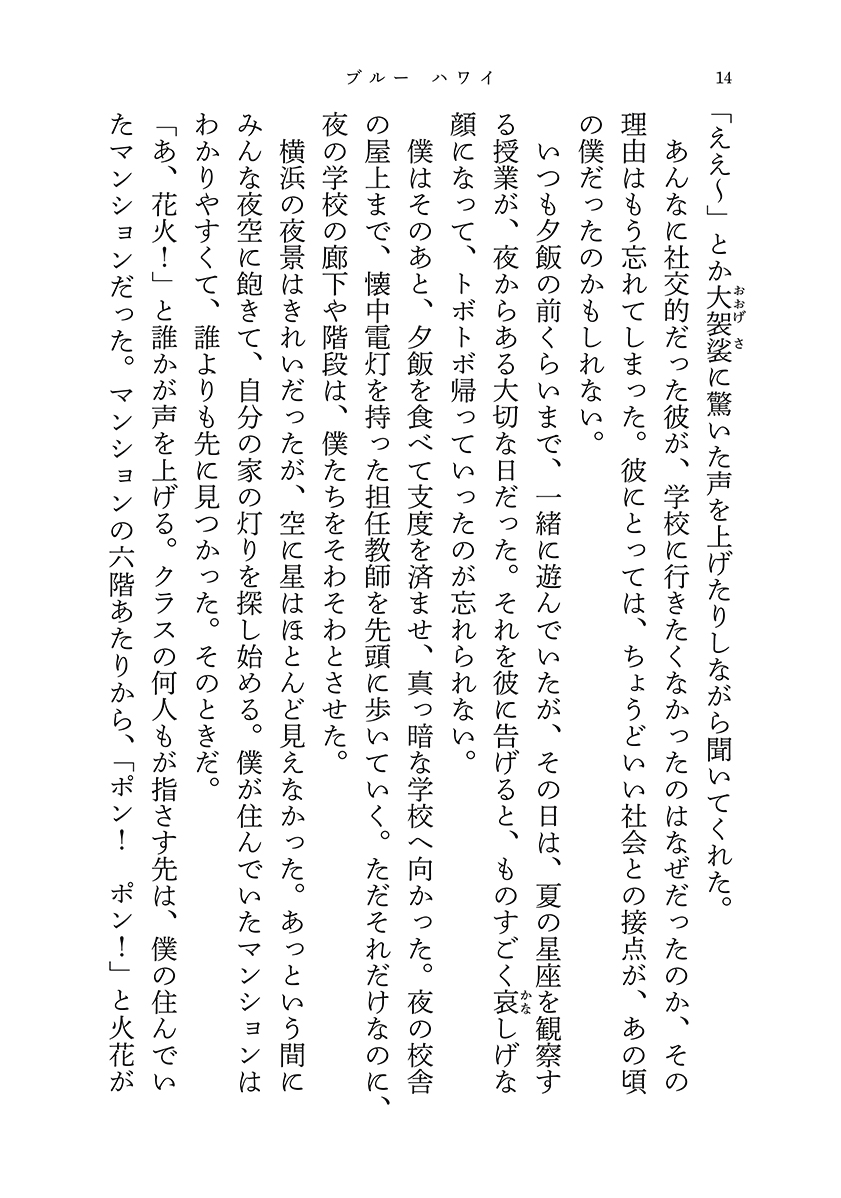 ブルー ハワイ
14
「ええ〜」とか大袈裟に驚いた声を上げたりしながら聞いてくれた。
　あんなに社交的だった彼が、学校に行きたくなかったのはなぜだったのか、その
理由はもう忘れてしまった。彼にとっては、ちょうどいい社会との接点が、あの頃
の僕だったのかもしれない。
　いつも夕飯の前くらいまで、一緒に遊んでいたが、その日は、夏の星座を観察す
る授業が、夜からある大切な日だった。それを彼に告げると、ものすごく哀しげな
顔になって、トボトボ帰っていったのが忘れられない。
　僕はそのあと、夕飯を食べて支度を済ませ、真っ暗な学校へ向かった。夜の校舎
の屋上まで、懐中電灯を持った担任教師を先頭に歩いていく。ただそれだけなのに、
夜の学校の廊下や階段は、僕たちをそわそわとさせた。
　横浜の夜景はきれいだったが、空に星はほとんど見えなかった。あっという間に
みんな夜空に飽きて、自分の家の灯りを探し始める。僕が住んでいたマンションは
わかりやすくて、誰よりも先に見つかった。そのときだ。
「あ、花火！」と誰かが声を上げる。クラスの何人もが指さす先は、僕の住んでい
たマンションだった。マンションの六階あたりから、「ポン！　ポン！」と火花が